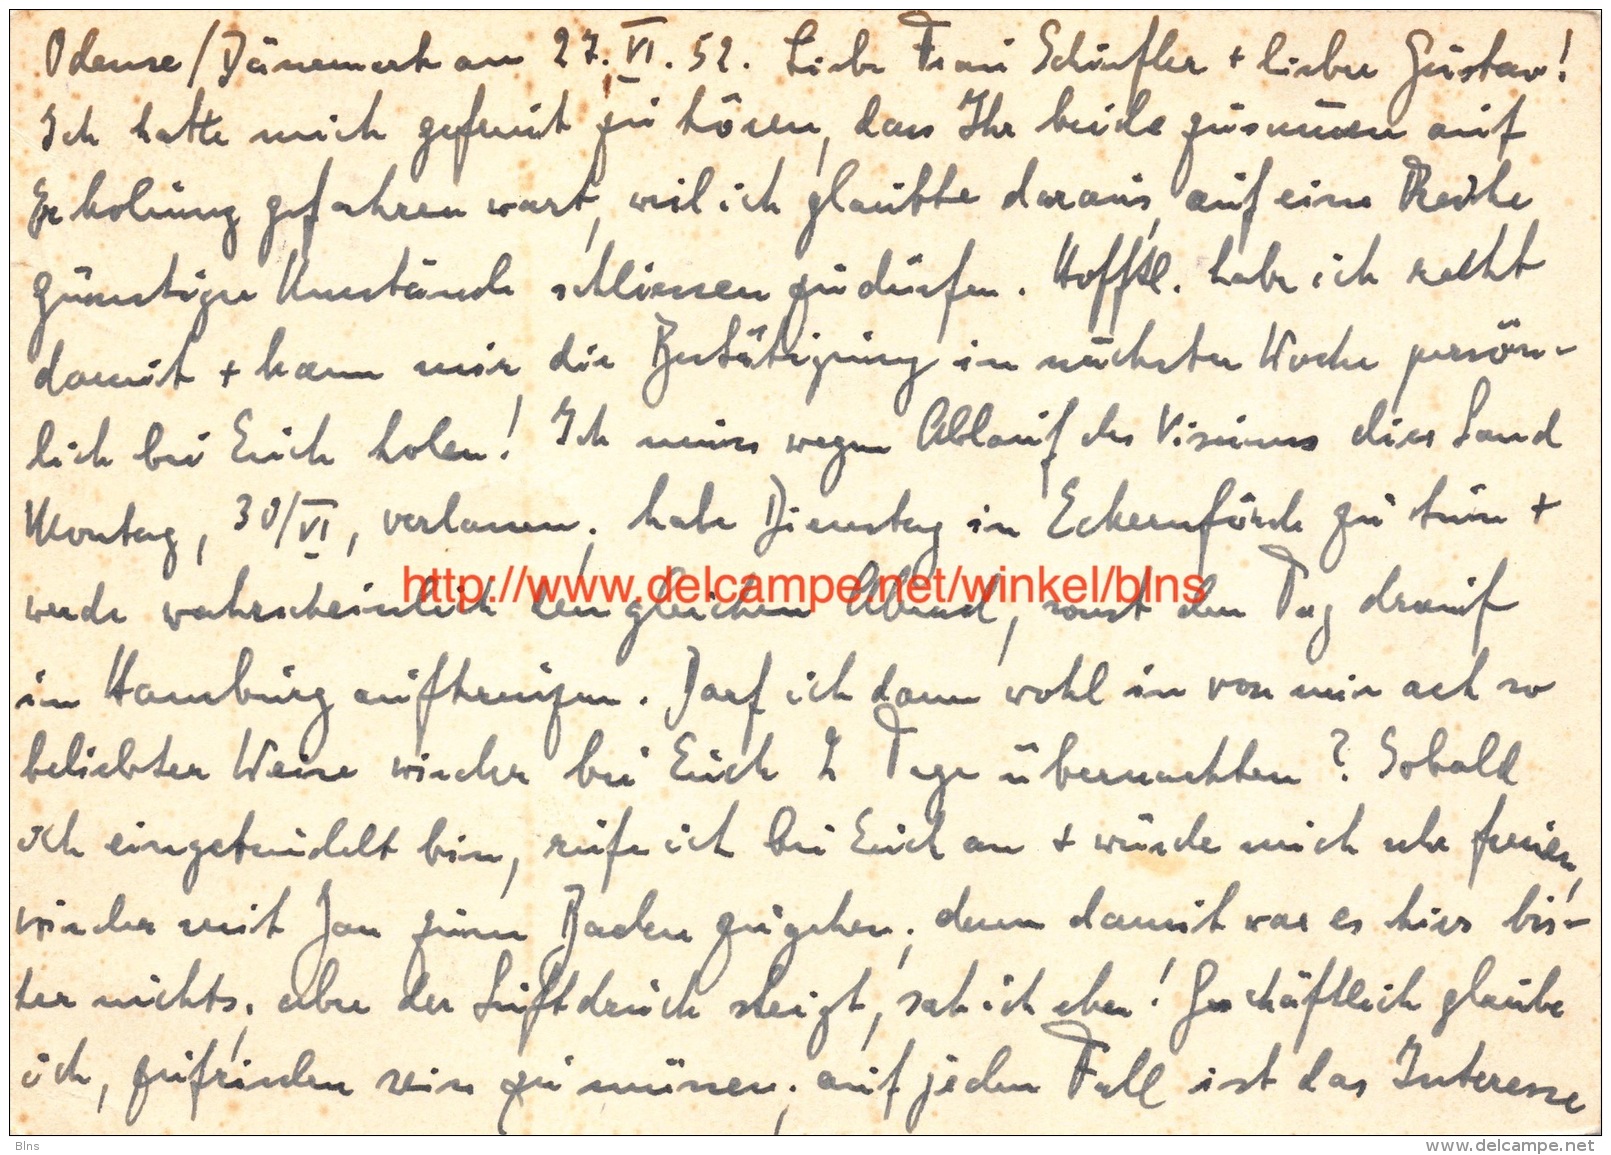 Odense/Dänemark am 27.VI.52. Liebe Frau Schiefler + lieber Gustav!
Ich hatte mich gefreut zu hören, dass Ihr beide zusammen auf
Erholung gefahren wart, weil ich glaubte daraus, auf eine Reihe
günstiger Umstände schliessen zu dürfen. Hofftl. habe ich recht
damit + kann mir die Bestätigung in nächster Woche persön-
lich bei Euch holen! Ich muss wegen Ablauf des Visums dies Land
Montag, 30/VI, verlassen, habe Dienstag in Eckernförde zu tun +
werde wahrscheinlich den gleichen Abend, sonst den Tag drauf
in Hamburg aufkreuzen. Darf ich dann wohl in von mir ach so
beliebter Weise wieder bei Euch 2 Tage übernachten? Sobald
ich eingetrudelt bin, rufe ich bei Euch an + würde mich sehr freuen,
wieder mit Jan zum Baden zu gehen, denn damit war es hier bis-
her nichts, aber der Luftdruck steigt, sah ich eben! Geschäftlich glaube
ich, zufrieden sein zu müssen, auf jeden Fall ist das Interesse
http://www.delcampe.net/winkel/blns
Blns
www.delcampe.net